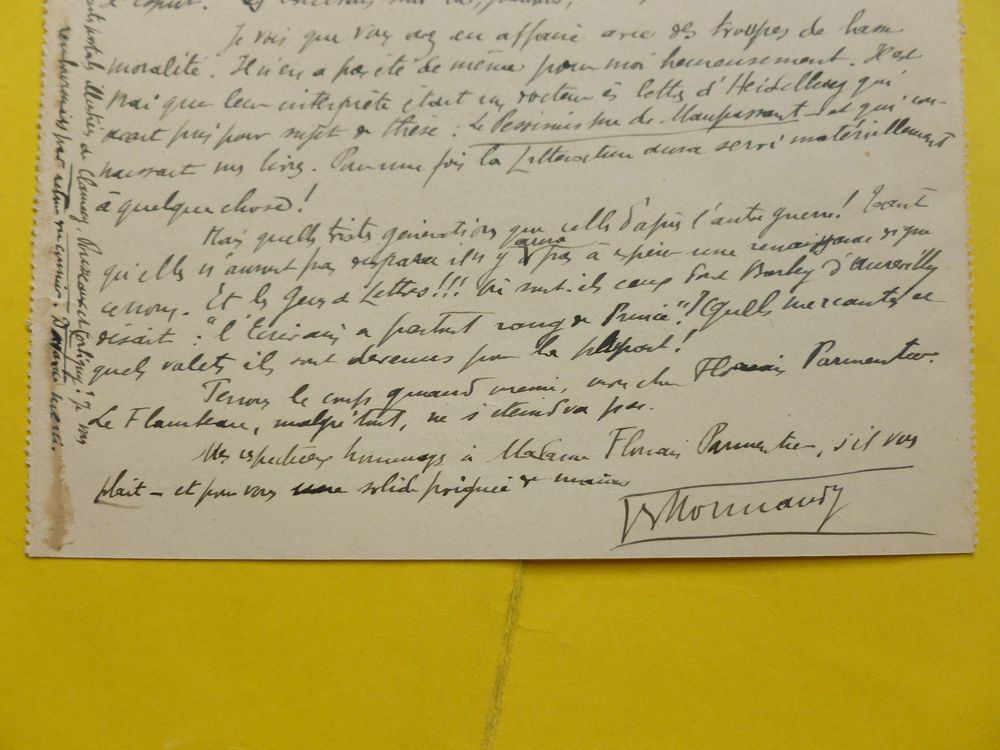 Je vois que vous avez eu affaire avec des troupes de basse
moralité. Il n'en a pas été de même pour moi heureusement. Il est
vrai que leur interprète était un docteur ès lettres d'Heidelberg qui
avait pris pour sujet de thèse : Le Pessimisme de Maupassant et qui con-
naissait mes livres. Pour une fois la Littérature aura servi matériellement
à quelque chose !
Mais quelles tristes générations que celles d'après l'autre guerre ! Tant
qu'elles n'auront pas disparu il n'y aura pas à espérer une renaissance de
Et les Gens de Lettres !!! Où sont-ils ceux dont Barbey d'Aurevilly
disait : "l'Ecrivain a partout rang de Prince" ? Quels mercantis et
quels valets ils sont devenus pour la plupart !
Tenons le coup quand même, mon cher Florian Parmentier.
Le Flambeau, malgré tout, ne s'éteindra pas.
Mes respectueux hommages à Madame Florian Parmentier, s'il vous
plaît – et pour vous une solide poignée de mains
Normandy
postales illustrées de Clamecy. Je vous
rembourserai par retour du courrier. D'avance merci.